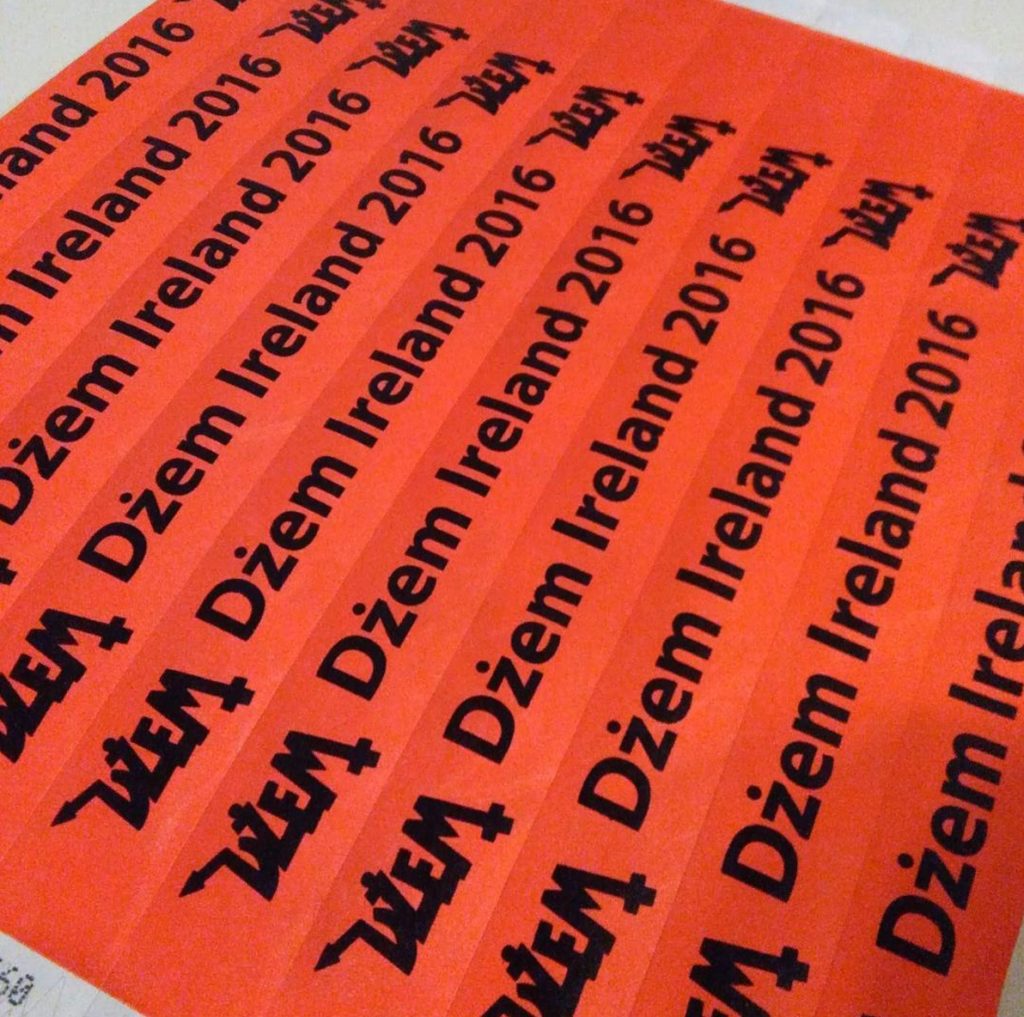 land 2016
m Ireland 2016 DŻEM
Dżem Ireland 2016 DŻEM
DŻEM Dżem Ireland 2016 DŻEM
DŻEM Dżem Ireland 2016 DŻEM
DŻEM Dżem Ireland 2016 DŻEM
DŻEM Dżem Ireland 2016 DŻEM
DŻEM Dżem Ireland 2016 DŻEM
DŻEM Dżem Ireland 2016 DŻEM
Dżem Irelan